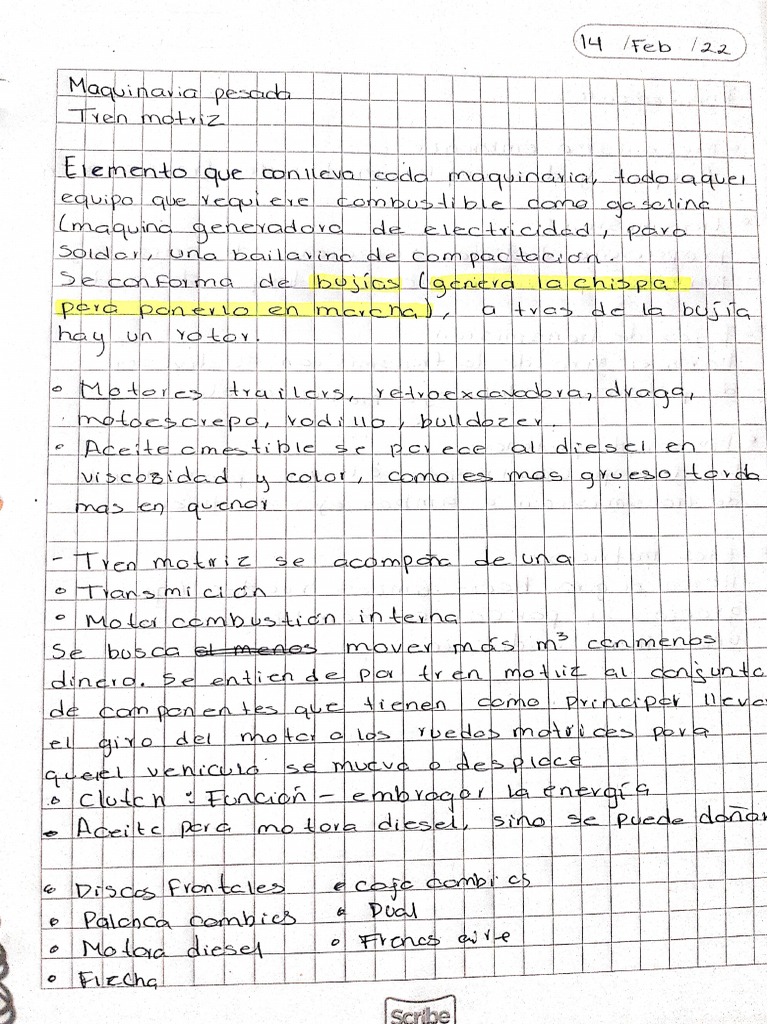 14 /Feb /22
Maquinaria pesada
Tren motriz
Elemento que conlleva cada maquinaria, todo aquel
equipo que requiere combustible como gasolina
(maquina generadora de electricidad, para
soldar, una bailarina de compactación.
Se conforma de bujías (genera la chispa
para ponerlo en marcha), a tras de la bujía
hay un rotor.
Motores trailers, retroexcavadora, draga,
motoescrepa, rodillo, bulldozer.
Aceite cmestible se parece al diesel en
viscozidad y color, como es mas grueso tarda
mas en quemar
- Tren motriz se acompaña de una
Transmición
Motor combustión interna
Se busca el menos mover más m³ con menos
dinero. Se entiende por tren motriz al conjunto
de componentes que tienen como principar lleva
el giro del motor a las ruedas motrices para
que el vehiculo se mueva o desplace
Clutch : Función - embragar la energía
Aceite para motora diesel, sino se puede dañar
Discos frontales
caja cambios
Palanca cambios
Dual
Motora diesel
Frenos aire
Flecha
Scribe